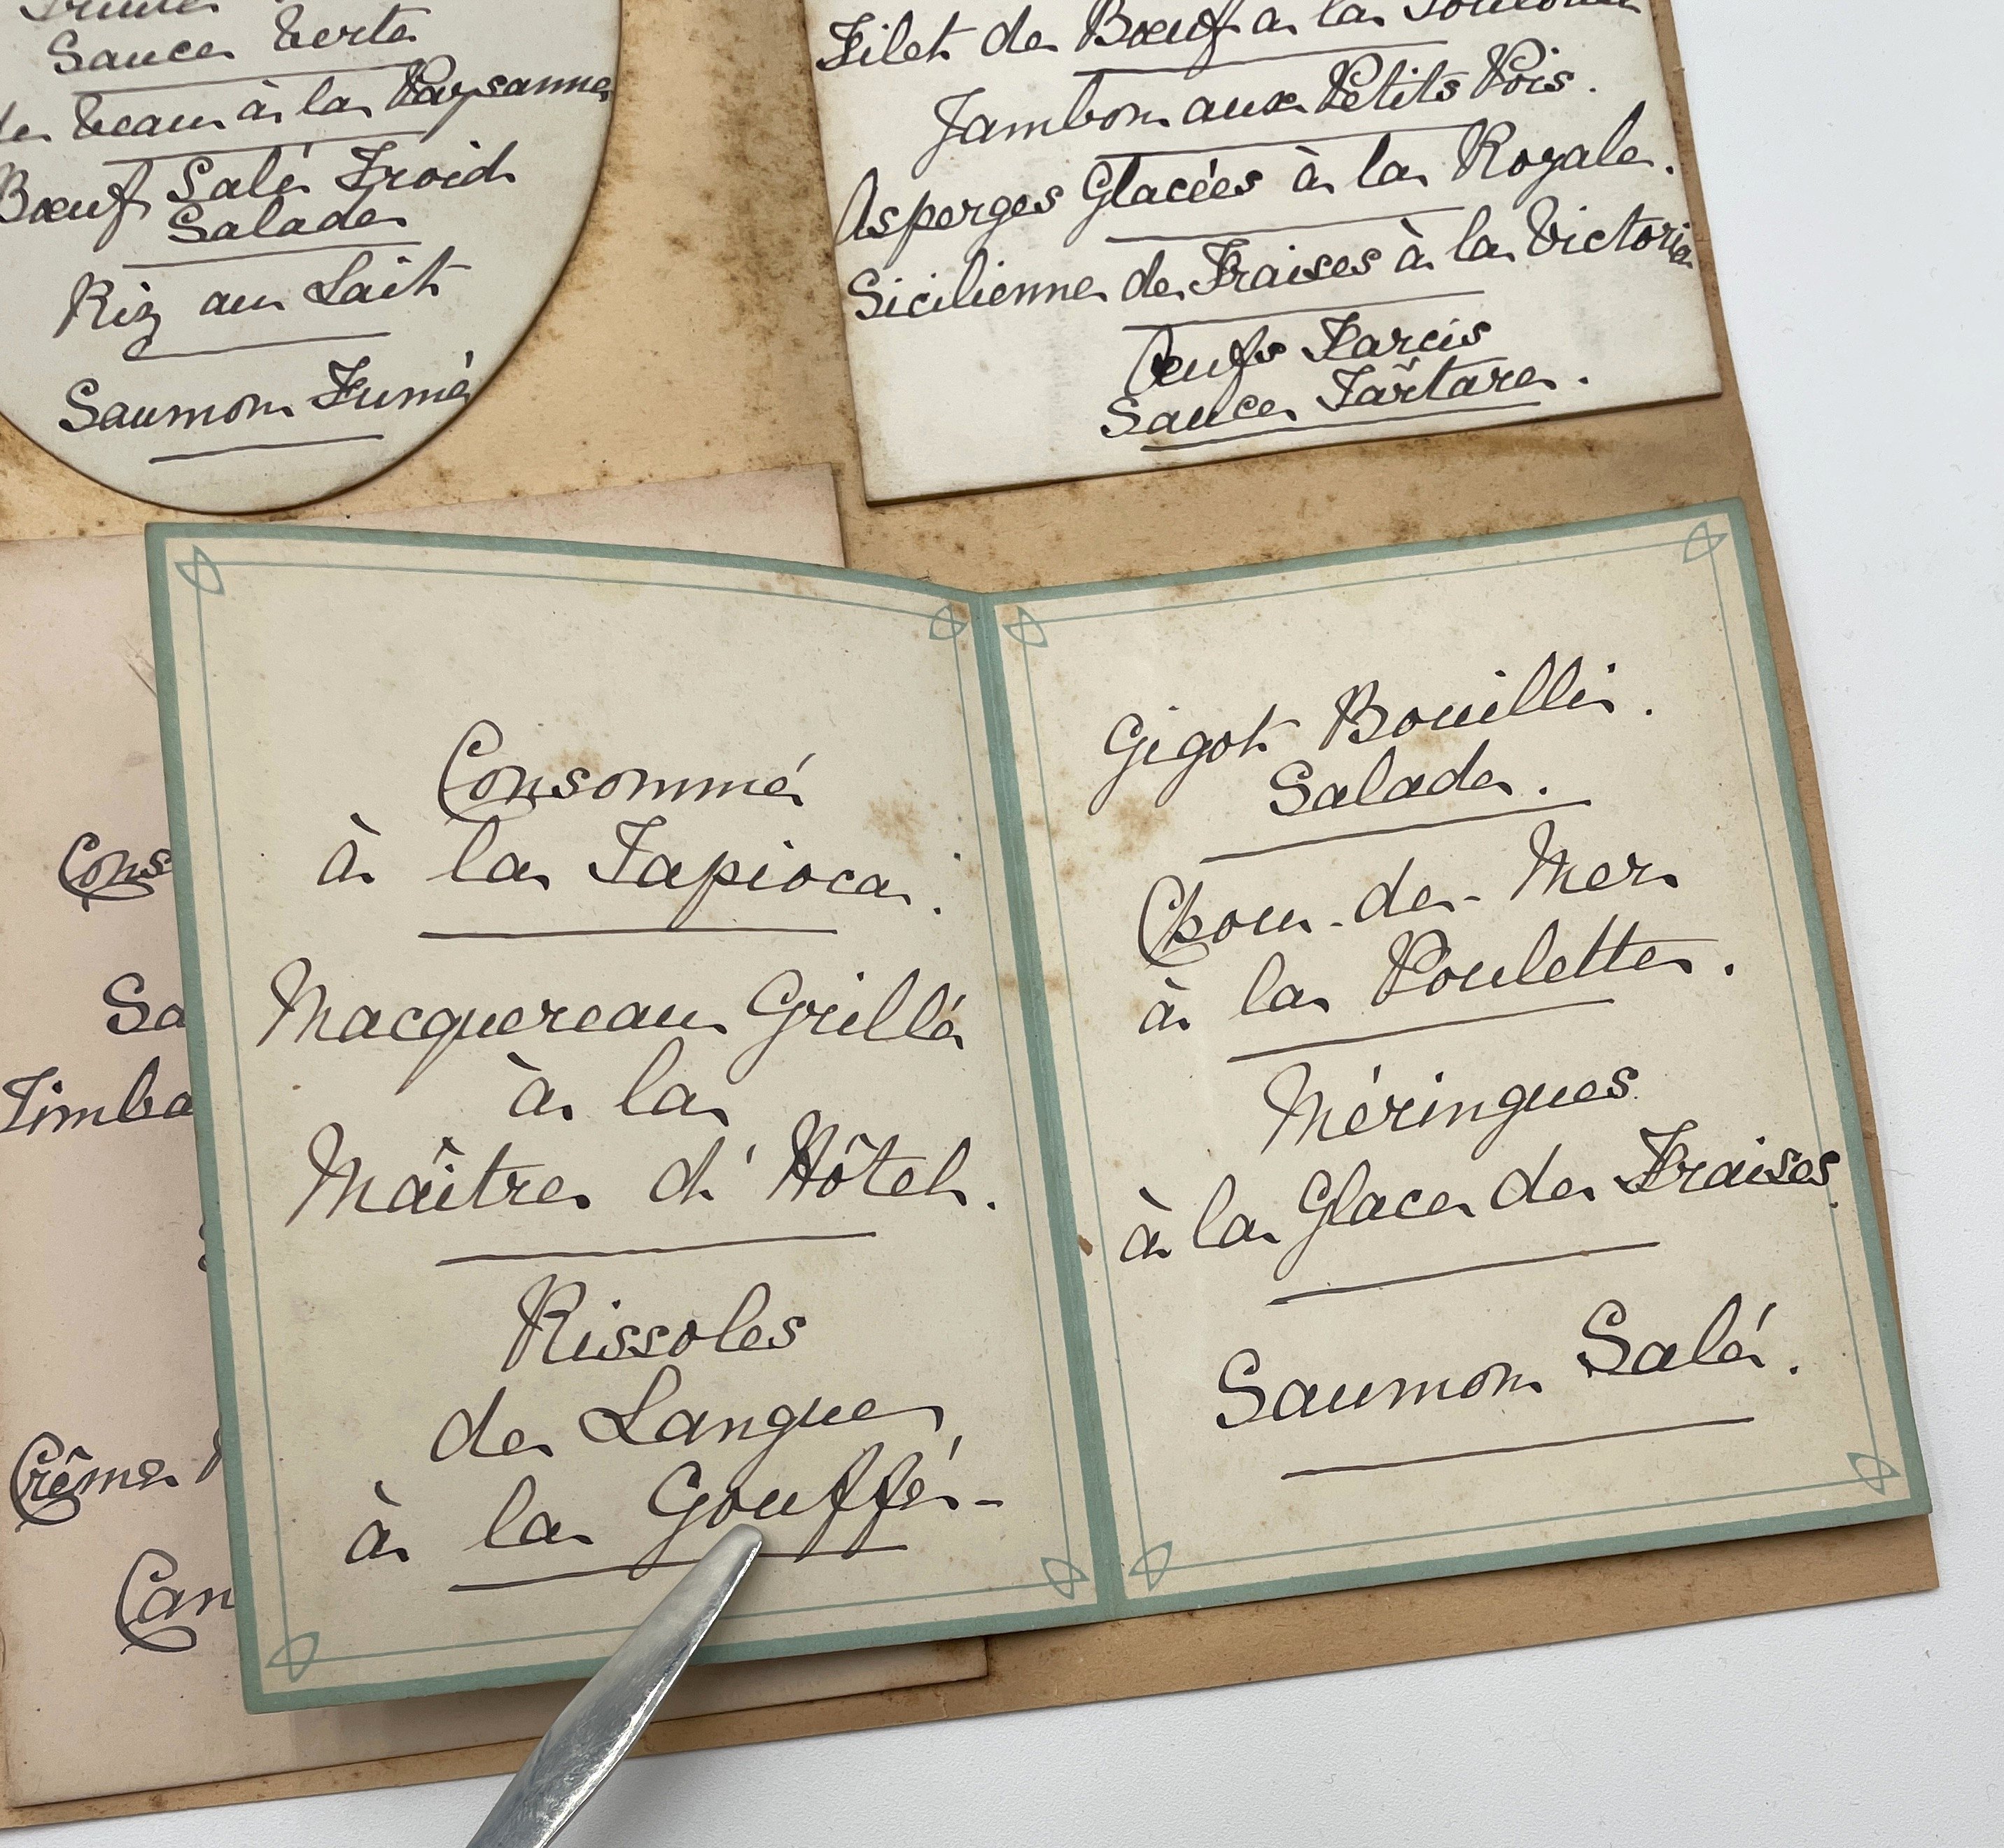 Sauce Verte
de Veau à la Paysanne
Bœuf Salé Froid
Salade
Riz au Lait
Saumon Fumé
Filet de Bœuf à la
Jambon aux Petits Pois.
Asperges Glacées à la Royale.
Sicilienne de Fraises à la Victoria
Œufs Farcis
Sauce Tartare.
Cons
Sa
Timba
Crême
Can
Consommé
à la Tapioca.
Macquereau Grillé
à la
Maître d'Hôtel.
Rissoles
de Langue
à la Gouffé-
Gigot Bouilli.
Salade.
Chou-de-Mer
à la Poulette.
Méringues
à la Glace de Fraises.
Saumon Salé.